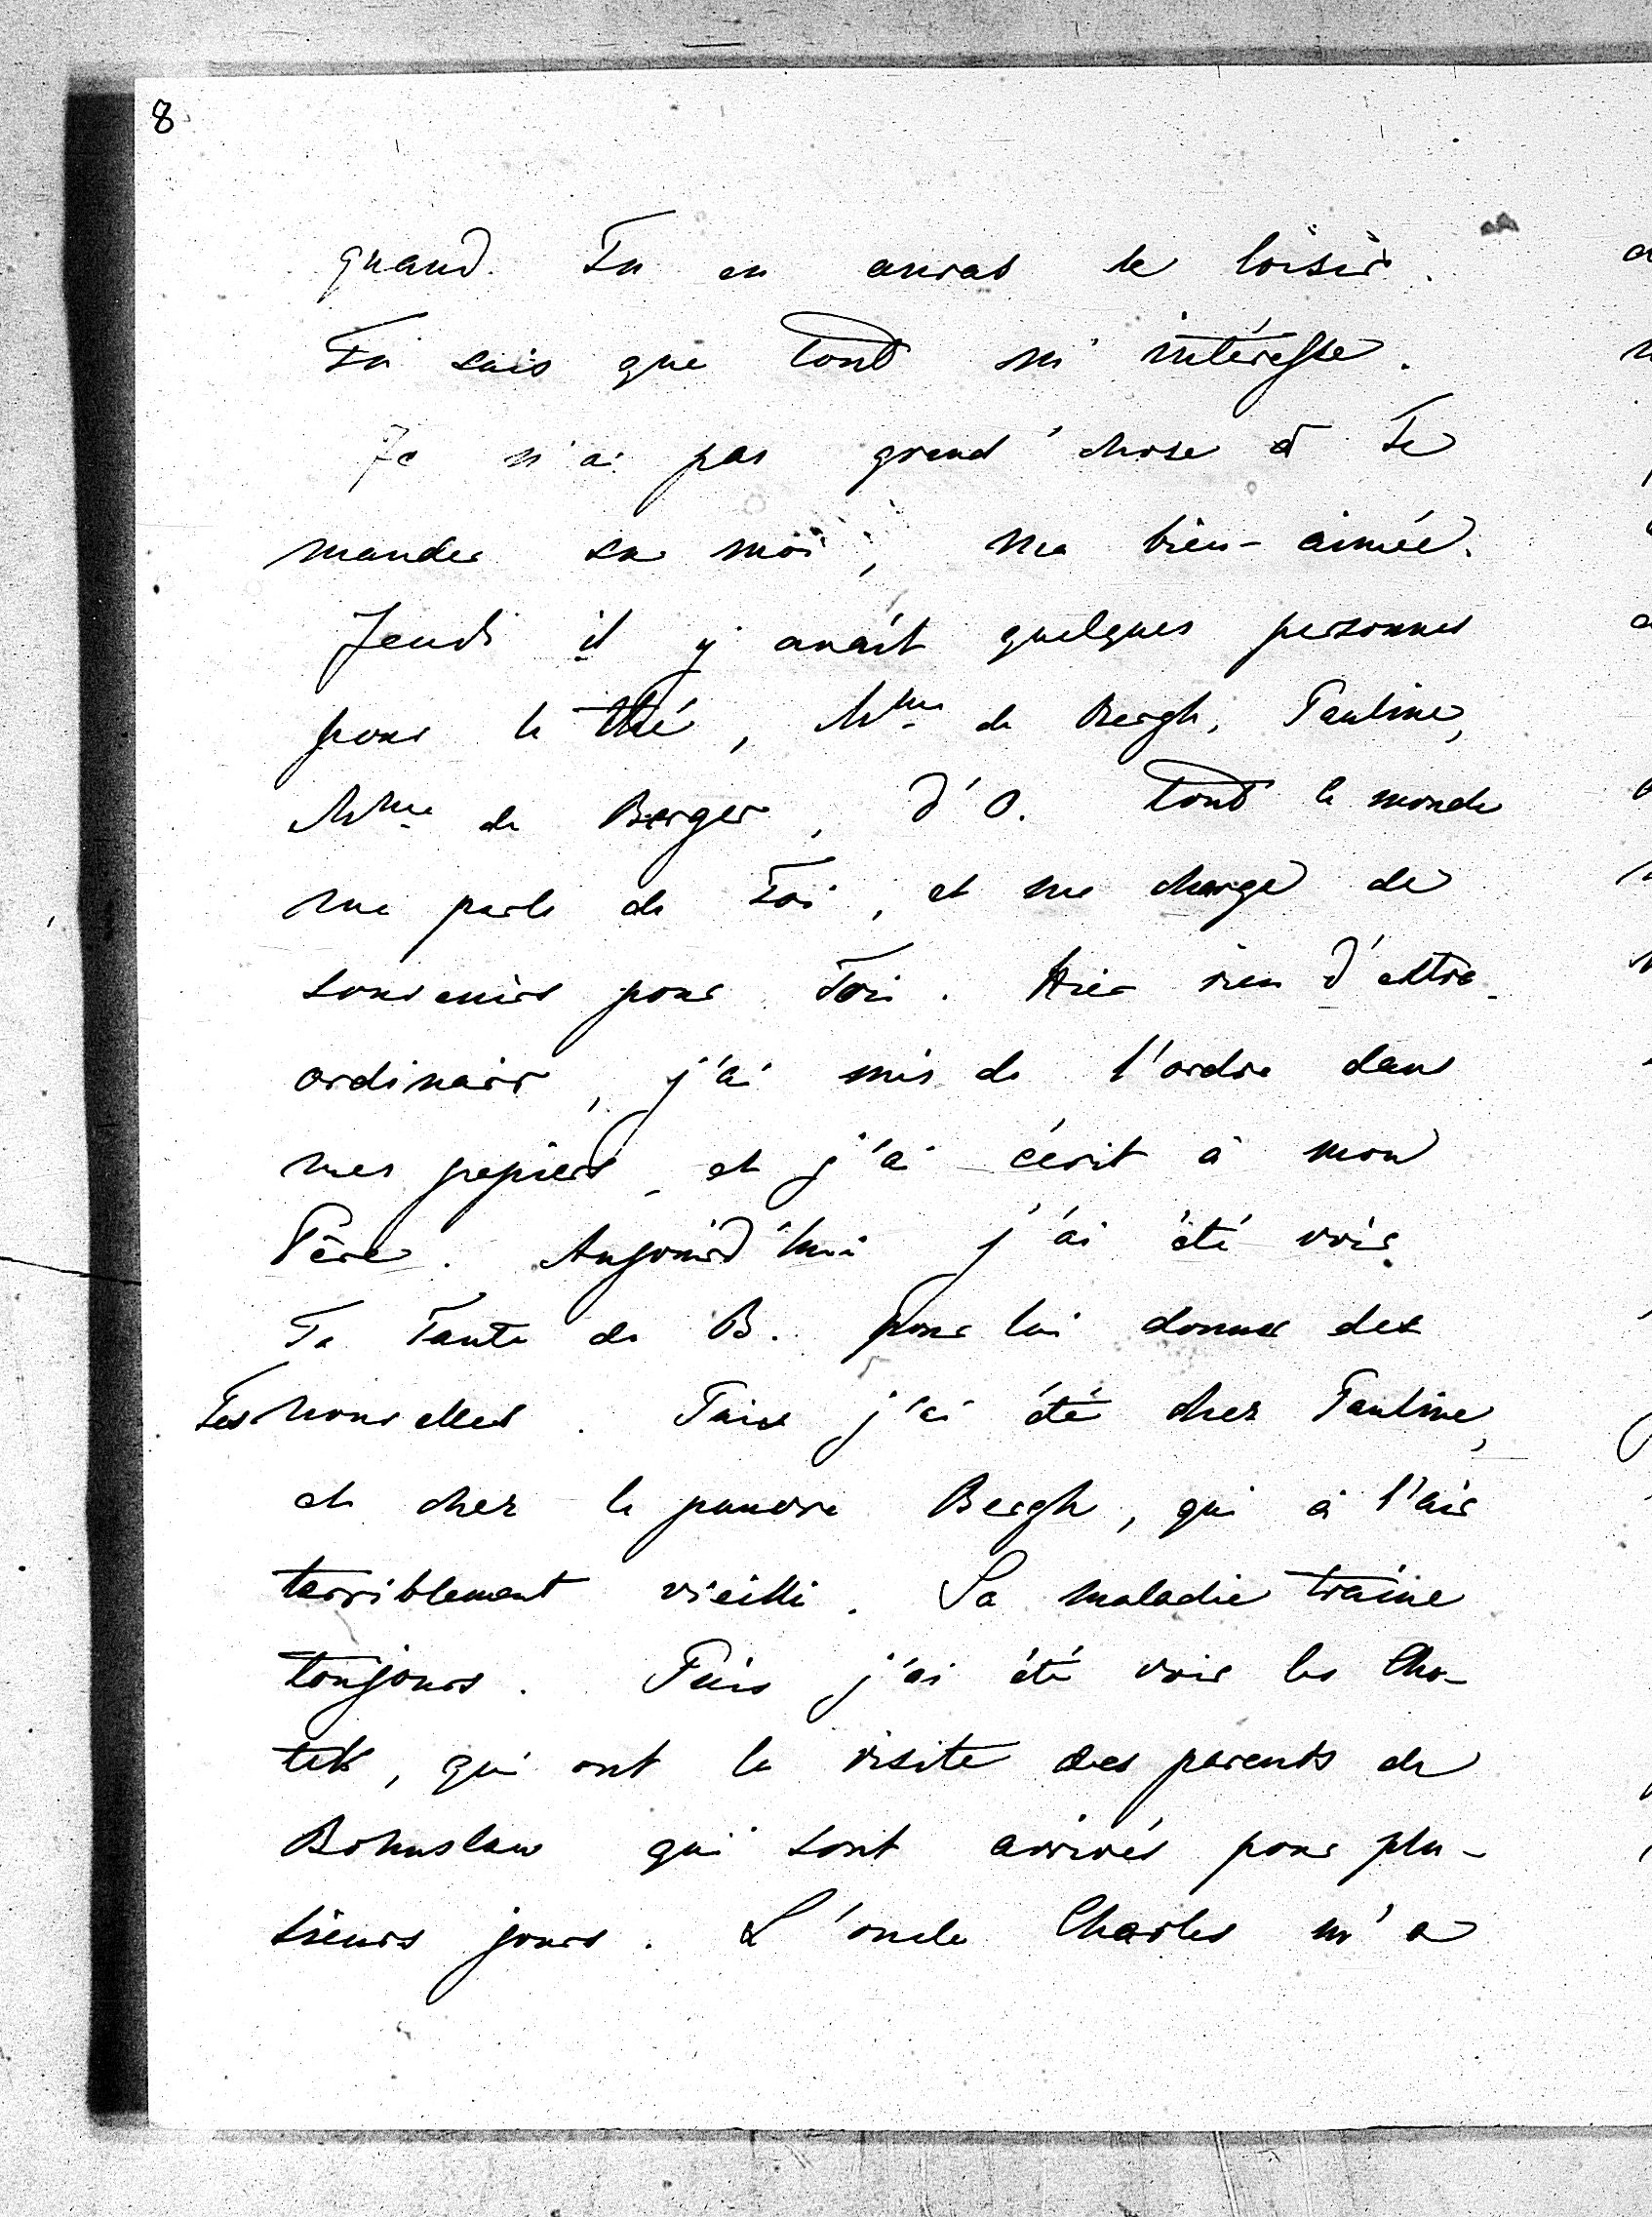 8
quand Tu en auras le loisir.
Tu sais que tout m'intéresse.
Je n'ai pas grand'chose à Te
mander de moi, ma bien-aimée.
Jeudi il y avait quelques personnes
pour le thé, Mme de Bergh, Pauline,
Mme de Berger, d'O. Tout le monde
me parle de Toi, et me charge de
souvenirs pour Toi. Hier rien d'extra-
ordinaire, j'ai mis de l'ordre dans
mes papiers, et j'ai écrit à mon
Père. Aujourd'hui j'ai été voir
Ta Tante de B. pour lui donner des
Tes nouvelles. Puis j'ai été chez Pauline,
et chez le pauvre Bergh, qui à l'air
terriblement vieilli. Sa maladie traine
toujours. Puis j'ai été voir les Cho-
tek, qui ont la visite des parents de
Bohuslaw qui sont arrivés pour plu-
sieurs jours. L'oncle Charles m'a